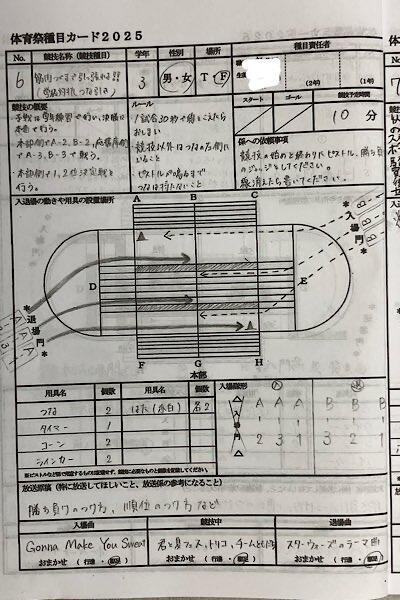 体育祭種目カード2025
No. 競技名称(競技種目) 学年 性別 場所 種目責任者
6 引
(学級対抗つな引き) 3 男・女 T・F
(2年) (1年)
競技の概要 ルール スタート ゴール 競技予定時間
予戦は学年練習で行い、決勝に
本番で行う。
本部側でA-2、B-2、応席側
でA-3、B-3で戦う。
本部側で1,2位決定戦を
行う。
1試合30秒で
おしまい
競技以外はつなの右側に
いること
ピストルが鳴るまで
つなは持たないこと
10分
係への依頼事項
競技の始めと終わりにピストル、勝ち負け
のジャッジをしてください。
線消えたら書いてください。
入退場の動きや用具の設置場所
A B C
D E
F G H
本部
*入場門*
*退場門*
用具名 個数 用具名 個数 入場隊形
つな 2 はた(赤白) 各2
タイマー 1
コーン 2
ラインカー 2
A A A B B B
2 3 1 3 2 1
放送原稿(特に放送してほしいこと、放送係の参考になること)
勝ち負けのつけ方、順位のつけ方など
入場曲 競技中 退場曲
Gonna Make You Sweat 君と夏フェス、トリコ、チームともだち スターウォーズのテーマ曲
おまかせ(行進・駆足) おまかせ おまかせ(行進・駆足)